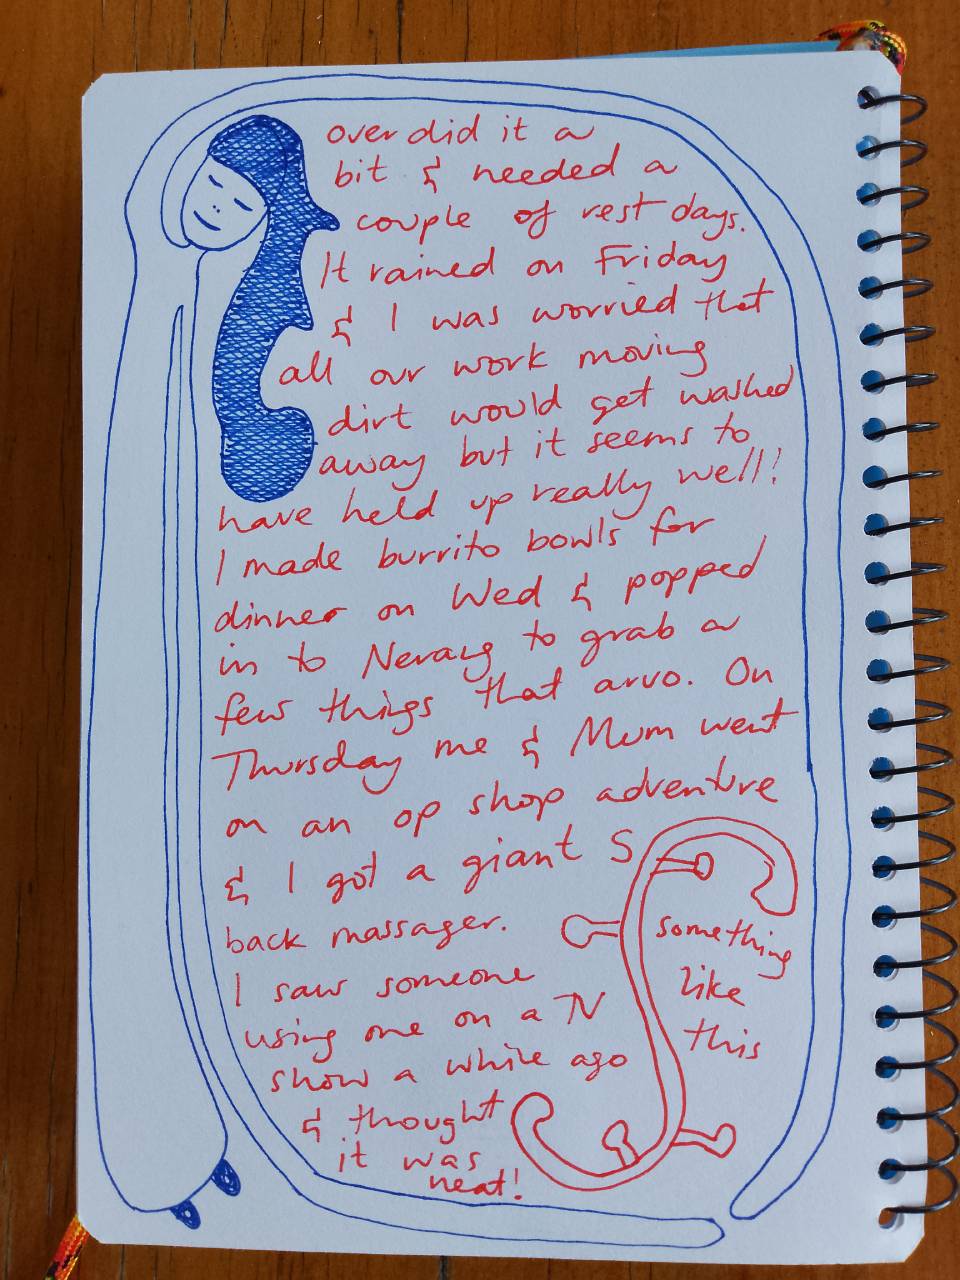 over did it a
bit & needed a
couple of rest days.
It rained on Friday
& I was worried that
all our work moving
dirt would get washed
away but it seems to
have held up really well!
I made burrito bowls for
dinner on Wed & popped
in to Nerang to grab a
few things that arvo. On
Thursday me & Mum went
on an op shop adventure
& I got a giant S
back massager.
I saw someone
using one on a TV
show a while ago
& thought
it was
neat!
something
like
this